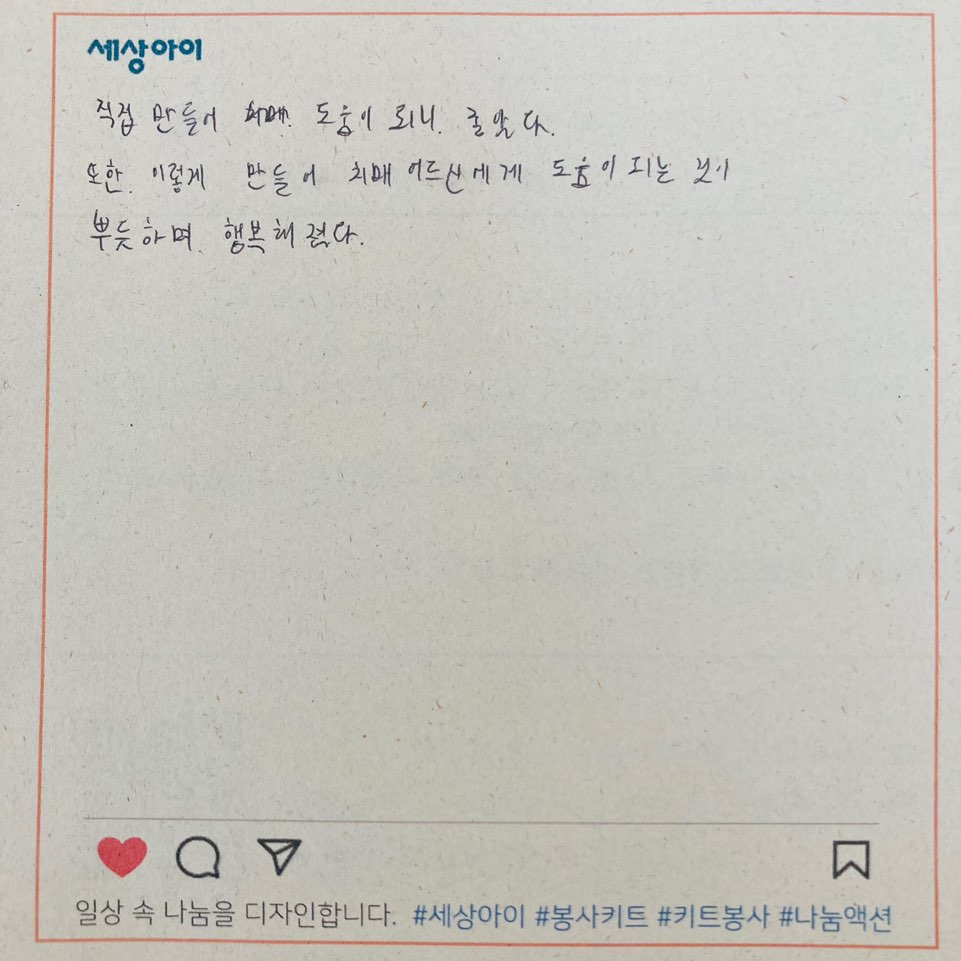 세상아이
직접 만들어 도움이 되니. 좋았다.
또한. 이렇게 만들어 치매 어르신에게 도움이 되는 것이
뿌듯하며. 행복해 졌다.
일상 속 나눔을 디자인합니다. #세상아이 #봉사키트 #키트봉사 #나눔액션